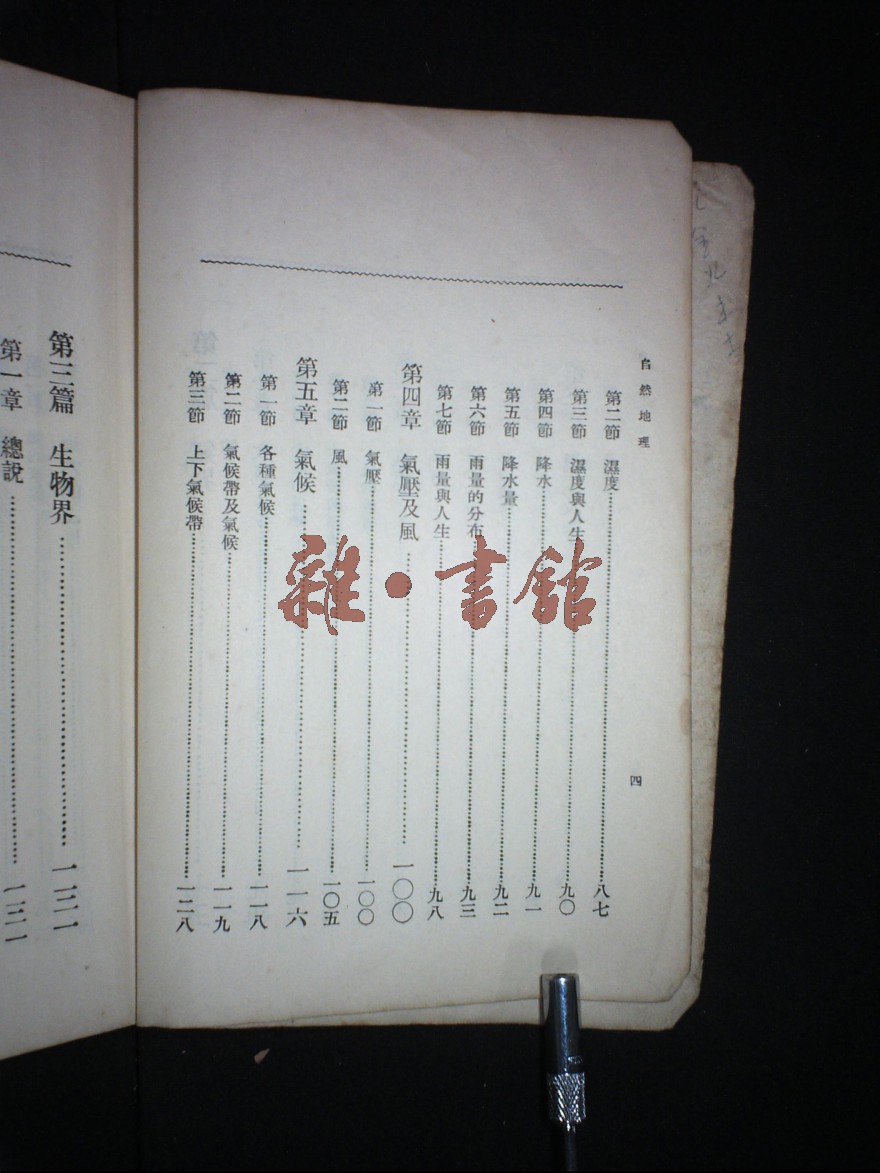 自然地理
四
第二節 濕度……八七
第三節 濕度與人生……九〇
第四節 降水……九一
第五節 降水量……九二
第六節 雨量的分布……九三
第七節 雨量與人生……九八
第四章 氣壓及風……一〇〇
第一節 氣壓……一〇〇
第二節 風……一〇五
第五章 氣候……一一六
第一節 各種氣候……一一八
第二節 氣候帶及氣候……一一九
第三節 上下氣候帶……一二八
第三篇 生物界……一三一
第一章 總說……一三一
雜·書館